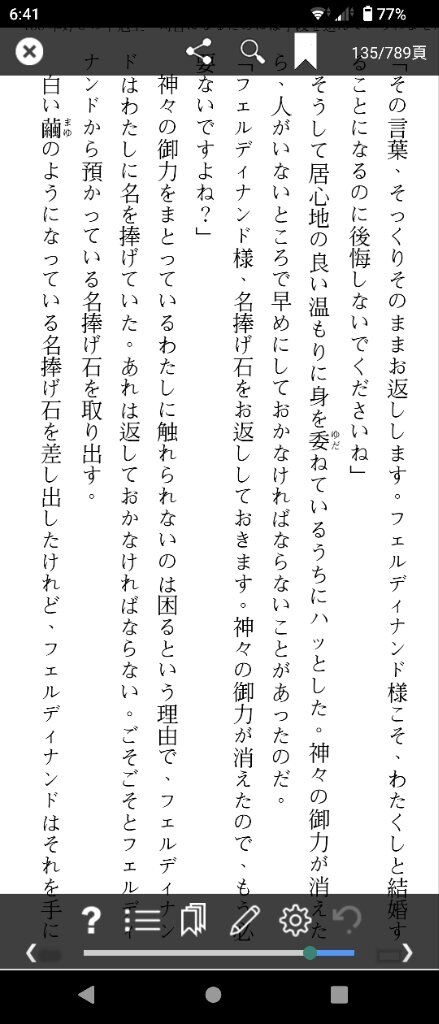 6:41
77%
135/789頁
「その言葉、そっくりそのままお返しします。フェルディナンド様こそ、わたくしと結婚す
ることになるのに後悔しないでくださいね」
そうして居心地の良い温もりに身を委ゆだねているうちにハッとした。神々の御力が消えた
ら、人がいないところで早めにしておかなければならないことがあったのだ。
「フェルディナンド様、名捧げ石をお返ししておきます。神々の御力が消えたので、もう必
要ないですよね？」
神々の御力をまとっているわたしに触れられないのは困るという理由で、フェルディナン
ドはわたしに名を捧げていた。あれは返しておかなければならない。ごそごそとフェルディ
ナンドから預かっている名捧げ石を取り出す。
白い繭まゆのようになっている名捧げ石を差し出したけれど、フェルディナンドはそれを手に